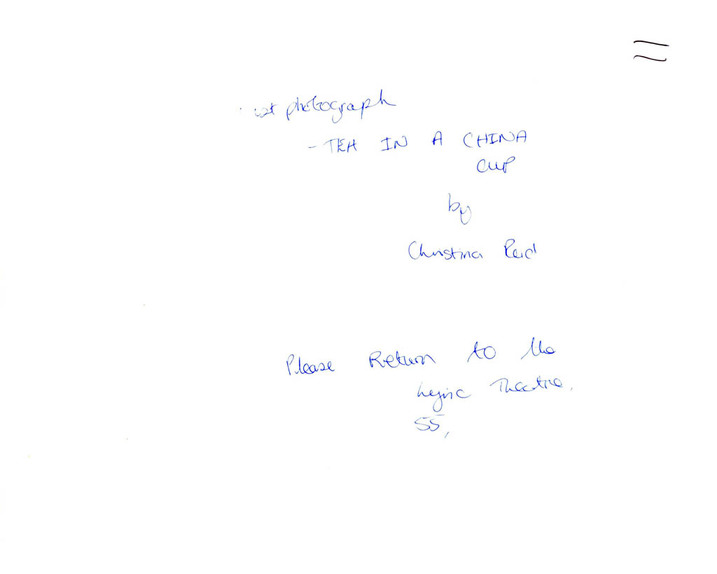 photograph
- TEA IN A CHINA
CUP
by
Christina Reid
Please Return to the
Lyric Theatre.
55,